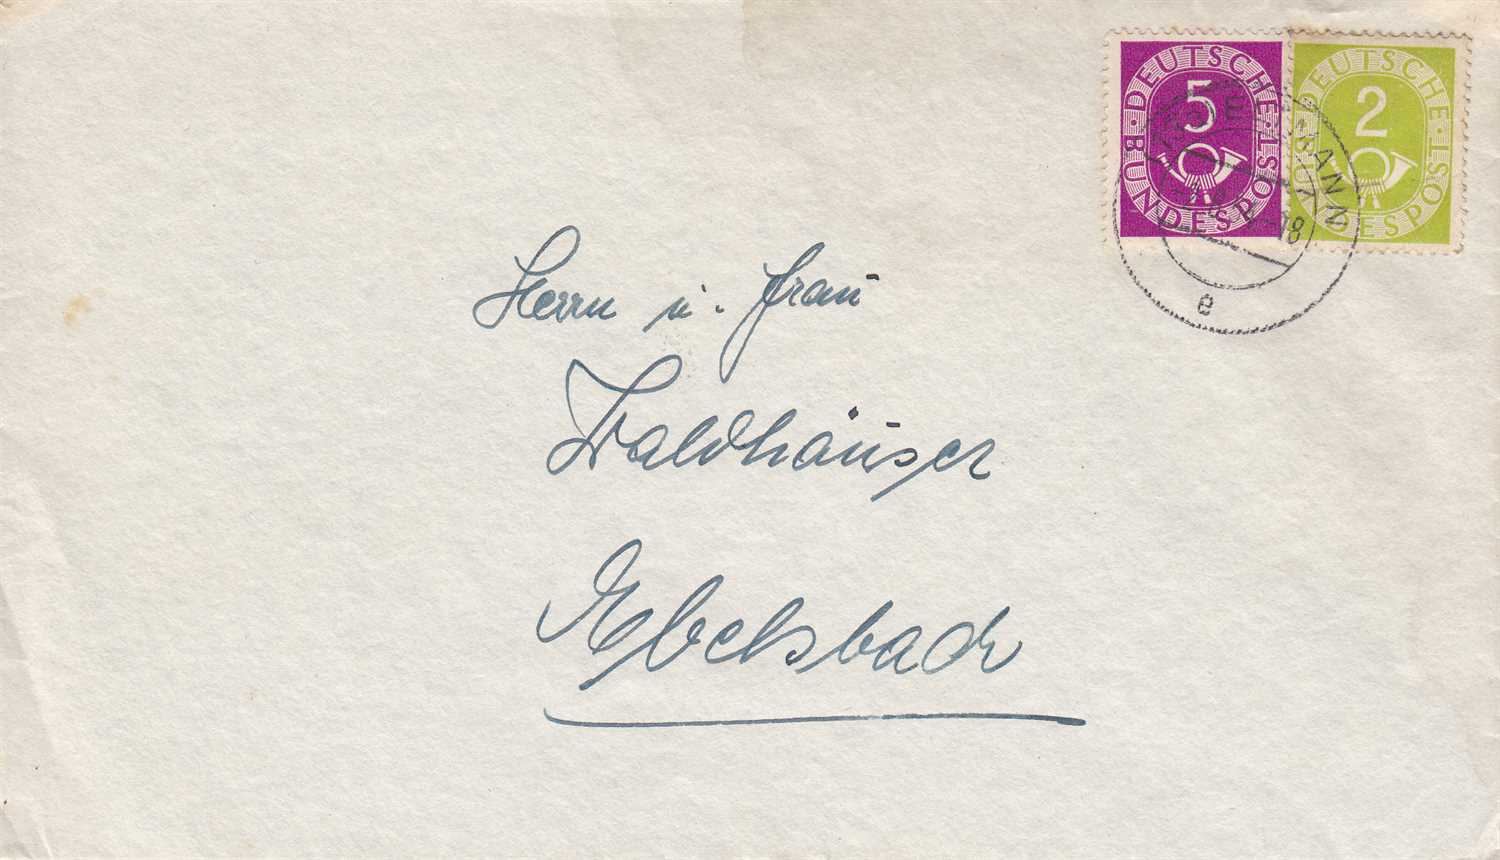 DEUTSCHE BUNDESPOST
5
DEUTSCHE BUNDESPOST
2
18
e
Herrn u. Frau
Waldhäuser
Ebelsbach